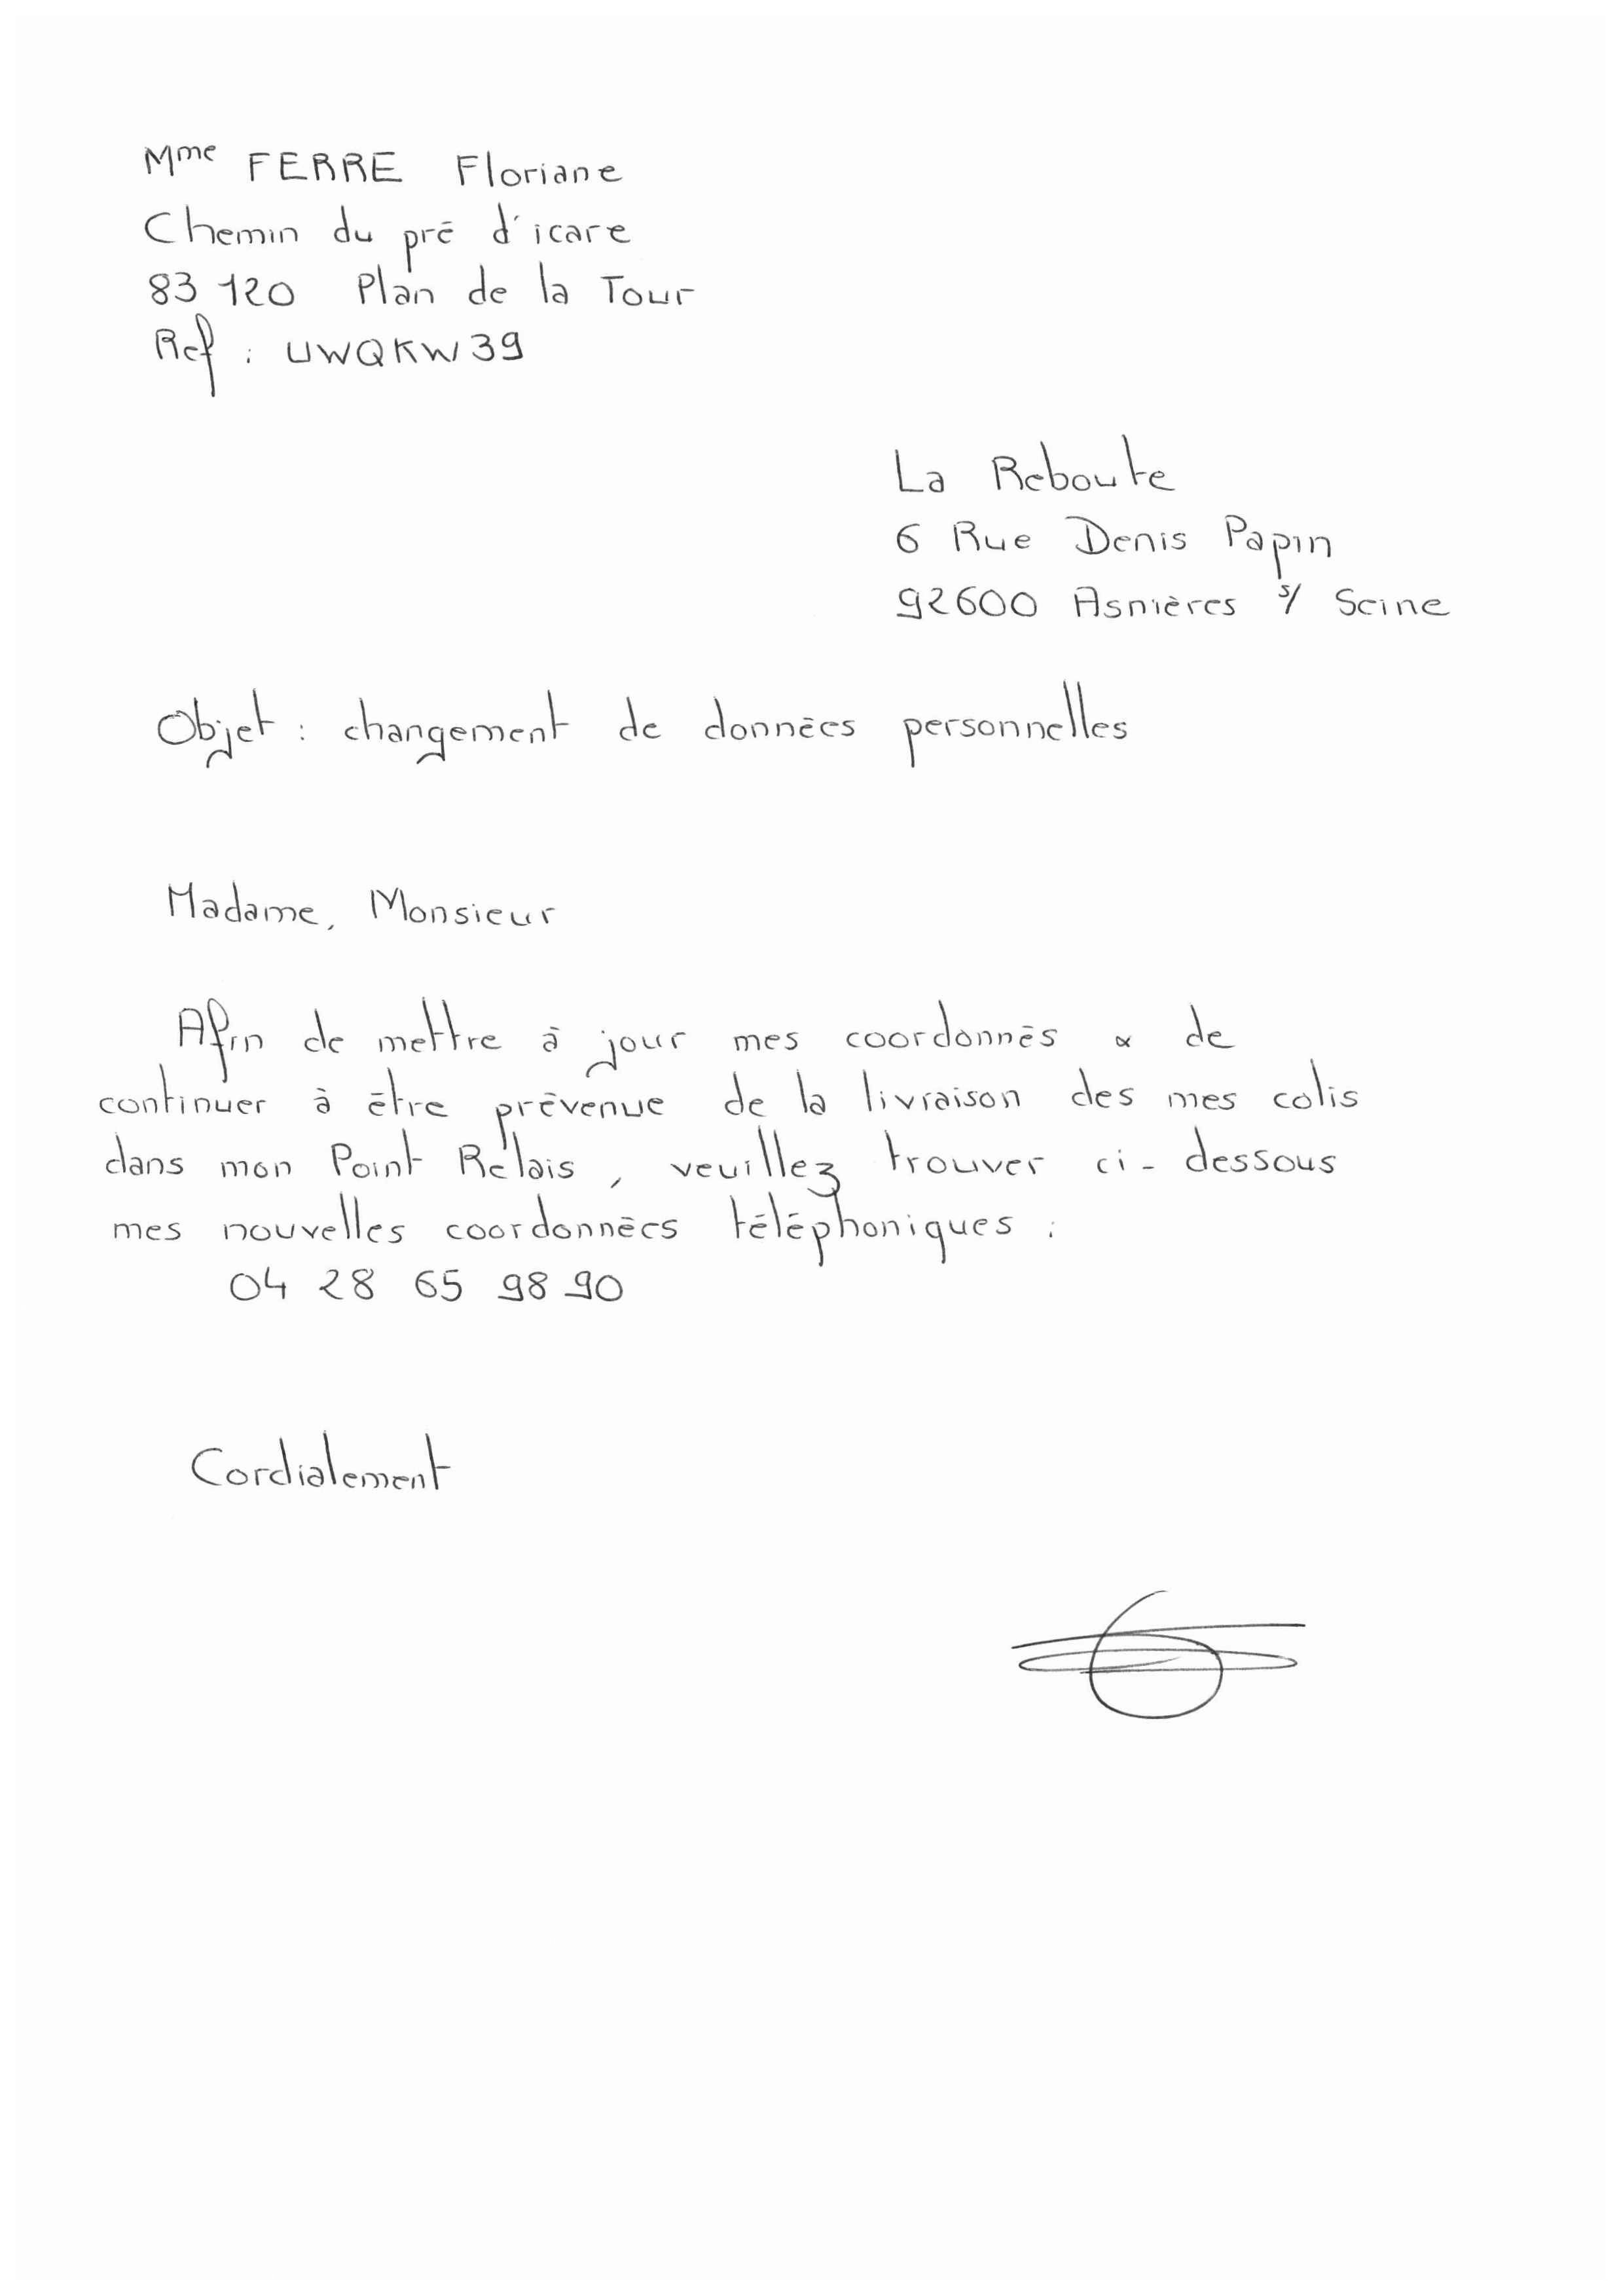 Mme FERRE Floriane
Chemin du pré d'icare
83 120 Plan de la Tour
Ref : UWQKW39
La Reboute
6 Rue Denis Papin
92600 Asnières s/ Seine
Objet : changement de données personnelles
Madame, Monsieur
Afin de mettre à jour mes coordonnés & de
continuer à être prévenue de la livraison des mes colis
dans mon Point Relais, veuillez trouver ci-dessous
mes nouvelles coordonnées téléphoniques :
04 28 65 98 90
Cordialement